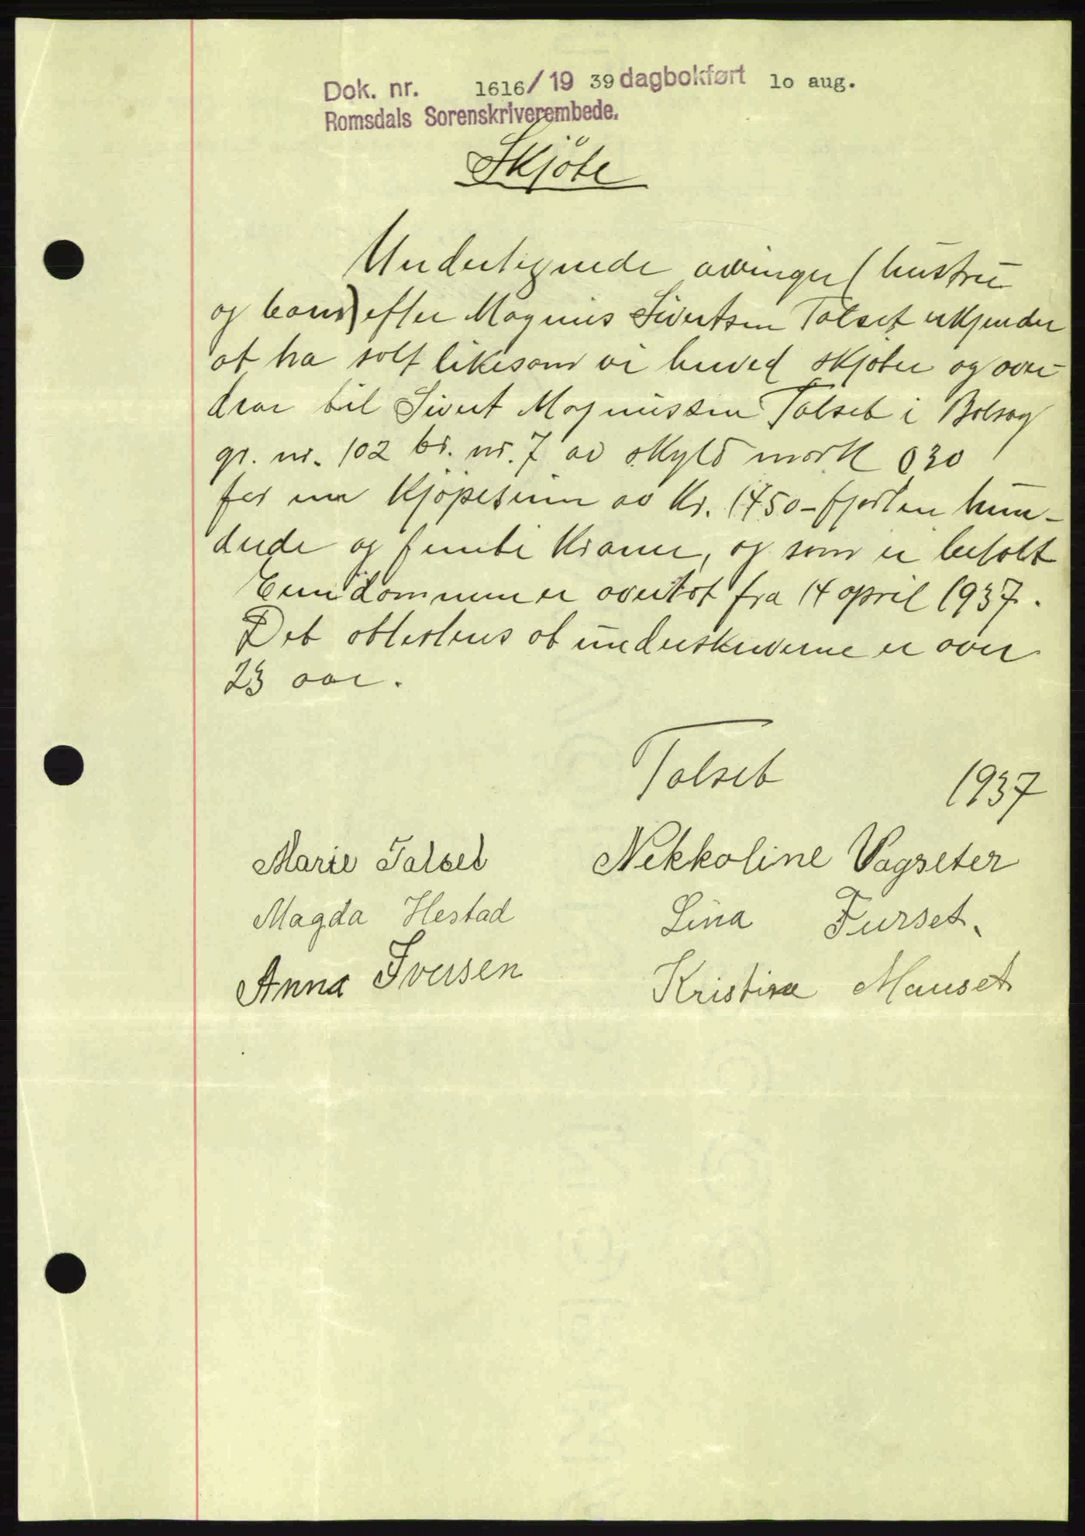 Dok. nr. 1616/19 39 dagbokført 10 aug.
Romsdals Sorenskriverembede.
Skjöte
Undertegnede arvinger (hustru
og barn) efter Magnus Sivertsen Talset erkjender
at ha solt likesom vi herved skjöter og over-
drar til Sivert Magnussen Talset i Bolsøy
gr. nr. 102 br. nr. 7 av skyld mark 030
for en kjöpesum av Kr. 1450 - fjorten hun-
drede og femti Kroner, og som er betalt
Eiendommen er overtat fra 14 april 1937.
Det attesteres at underskriverne er over
23 aar.
Talset 1937
Marie Talset Nekkoline Vagseter
Magda Hestad Lina Furset.
Anna Iversen Kristine Mauset